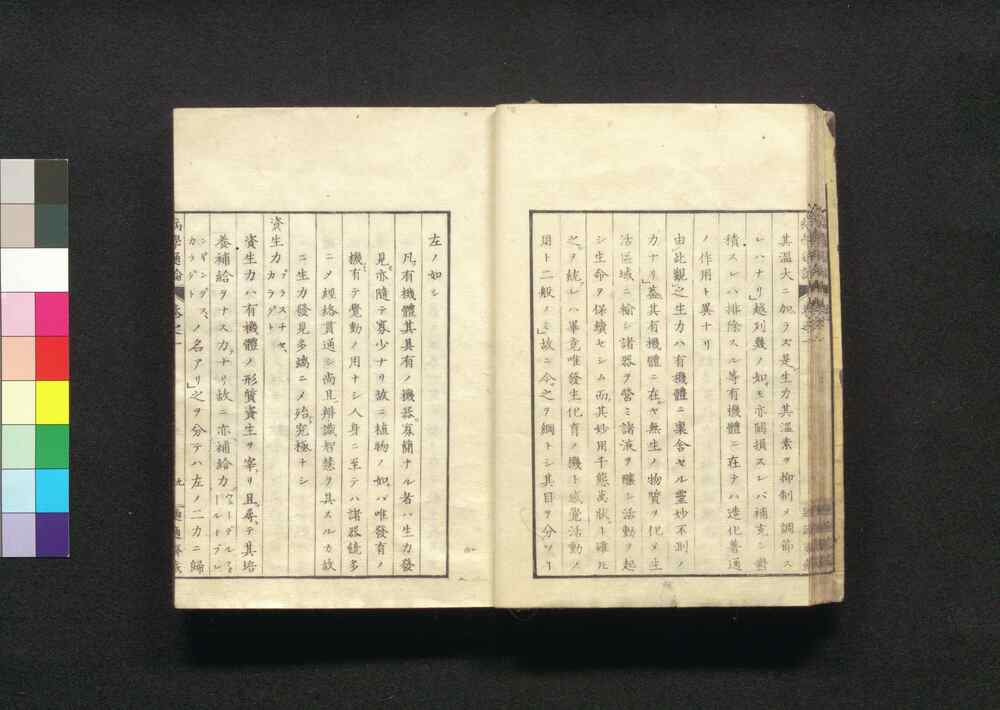 其温大ニ加ラズ是生力其温素ヲ抑制メ調節ス
レハナリ越列幾ノ如モ亦闕損スレバ補充シ欝
積スレハ排除スル等有機體ニ在テハ造化普通
ノ作用ト異ナリ
由此觀之生力ハ有機體ニ稟舎セル靈妙不測ノ
力ナリ蓋其有機體ニ在テヤ無生ノ物質ヲ化メ生
活區域ニ輸シ諸器ヲ營ミ諸液ヲ釀シ活動ヲ起
シ生命ヲ保續セシム而其妙用千態萬狀ト雖ヒ
之ヲ統レハ畢竟唯發生化育ノ機ト感覺活動ノ
用ト二般ノミ故ニ今之ヲ綱トシ其目ヲ分ツヿ
左ノ如シ
凡有機體其具有ノ機器寡簡ナル者ハ生力發
見亦隨テ寡少ナリ故ニ植物ノ如バ唯發育ノ
機有テ覺動ノ用ナシ人身ニ至テハ諸器饒多
ニメ經絡貫通シ尚且辨識智慧ヲ具スルカ故
ニ生力發見多端ニメ殆究極ナシ
資生力 プラスチセカラクト
資生力ハ有機體ノ形質資生ヲ宰リ且尋テ其培
養補給ヲナス力ナリ故ニ亦補給力
カラクト ノ名アリ之ヲ分テハ左ノ二力ニ歸
病學通論 卷之一 九 適適齋藏